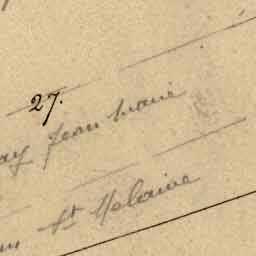 27.
ay Jean Marie
St Melaine